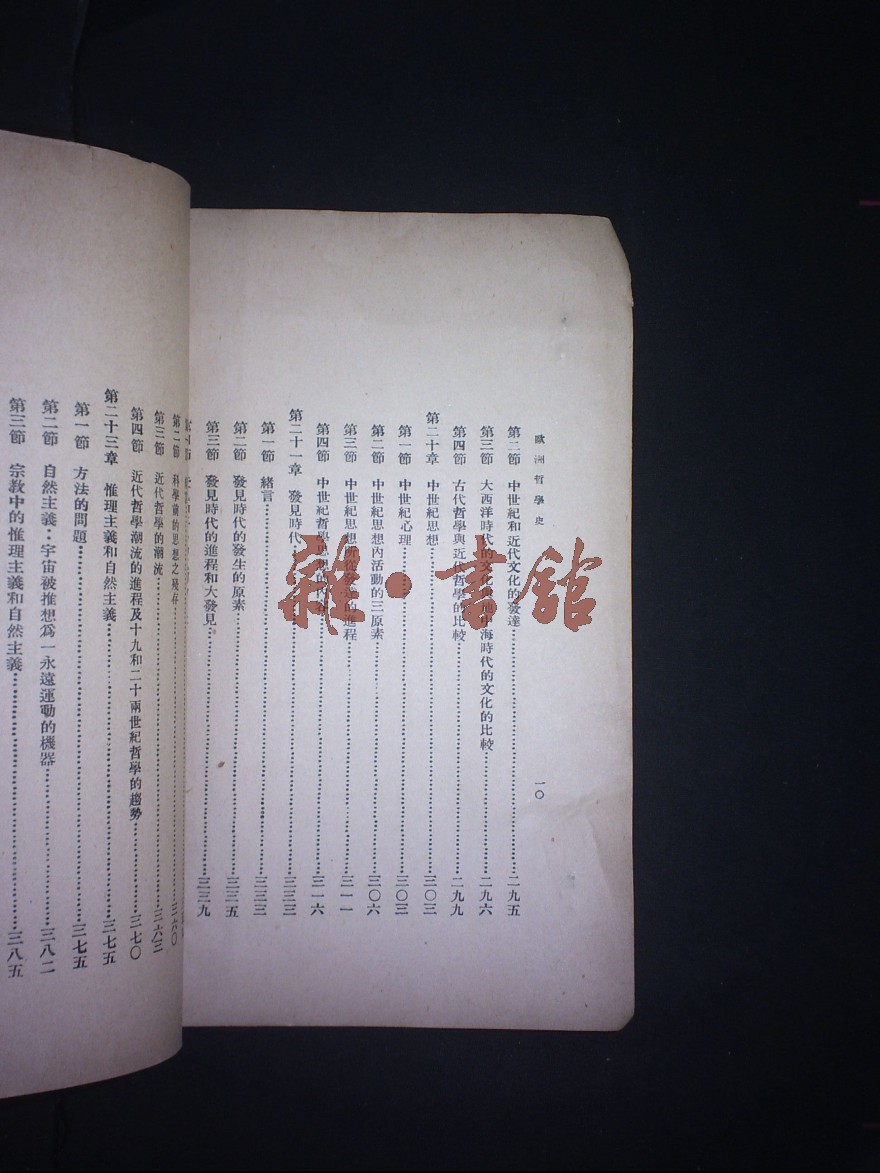 歐洲哲學史
一〇
第二節 中世紀和近代文化的發達 二九五
第三節 大西洋時代的文化與地中海時代的文化的比較 二九六
第四節 古代哲學與近代哲學的比較 二九九
第二十章 中世紀思想 三〇三
第一節 中世紀心理 三〇三
第二節 中世紀思想內活動的三原素 三〇六
第三節 中世紀思想所從發達的進程 三一一
第四節 中世紀哲學思想的 三一六
第二十一章 發見時代 三三三
第一節 緒言 三三三
第二節 發見時代的發生的原素 三三五
第三節 發見時代的進程和大發見 三三九
第二節 科學前的思想之殘存 三六〇
第三節 近代哲學的潮流 三六三
第四節 近代哲學潮流的進程及十九和二十兩世紀哲學的趨勢 三七〇
第二十三章 惟理主義和自然主義 三七五
第一節 方法的問題 三七五
第二節 自然主義：宇宙被推想為一永遠運動的機器 三八二
第三節 宗教中的惟理主義和自然主義 三八五
雜·書館